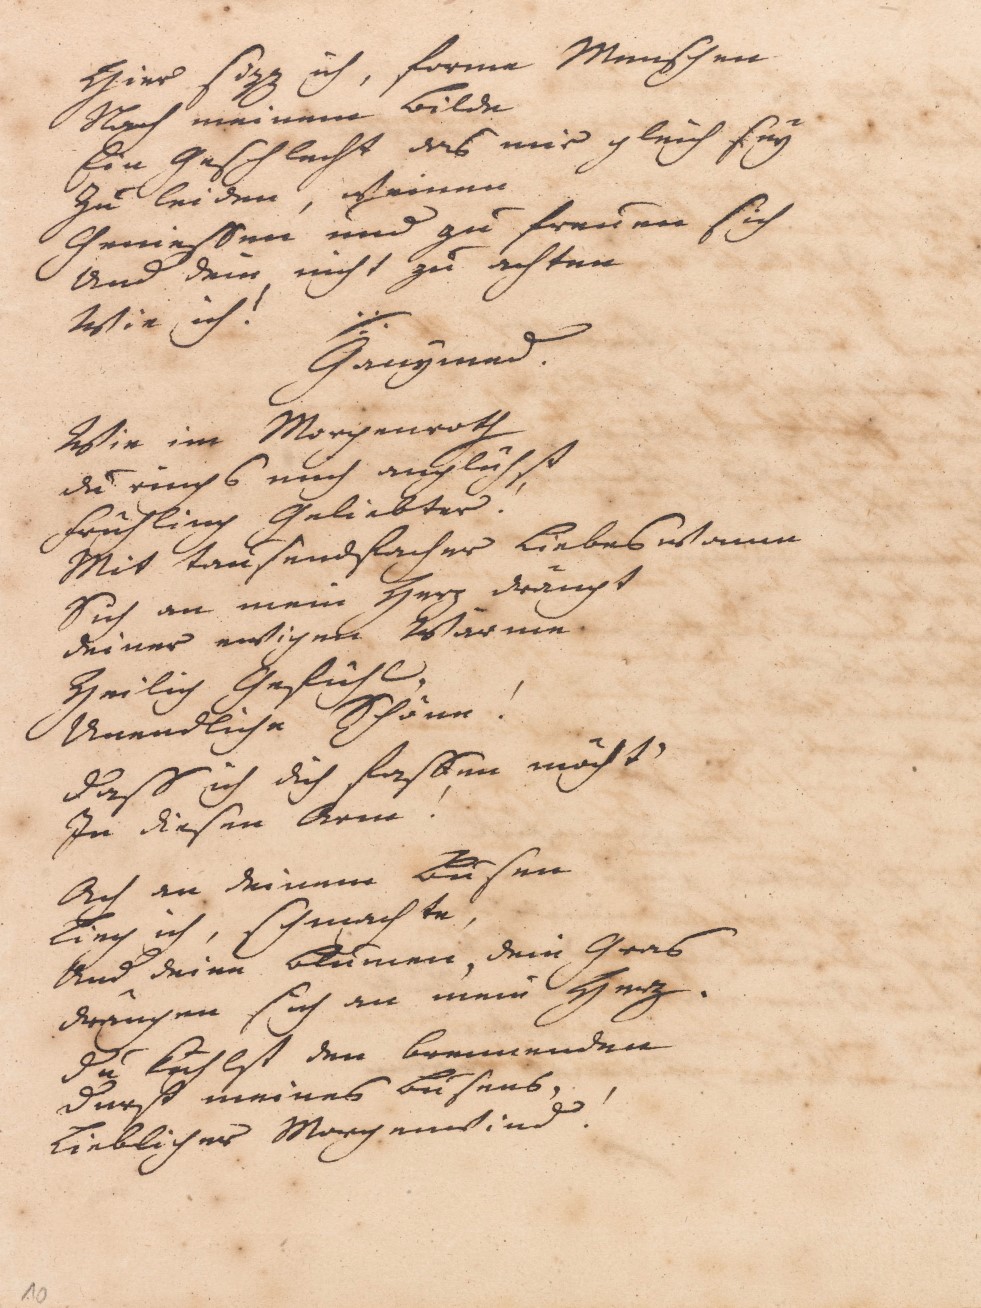 Hier sizz ich, forme Menschen
Nach meinem Bilde
Ein Geschlecht das mir gleich sey
Zu leiden, weinen
Geniessen und zu freuen sich
Und dein nicht zu achten
Wie ich!
Ganymed.
Wie im Morgenroth
du rings mich anglühst,
Frühling Geliebter!
Mit tausendfacher Liebeswonne
Sich an mein Herz drängt
deiner ewigen Wärme
Heilig Gefühl,
Unendliche Schöne!
Dass ich dich fassen möcht'
In diesen Arm!
Ach an deinem Busen
Lieg ich, schmachte,
Und deine Blumen, dein Gras
drängen sich an mein Herz.
Du kühlst den brennenden
Durst meines Busens,
Lieblicher Morgenwind!
10